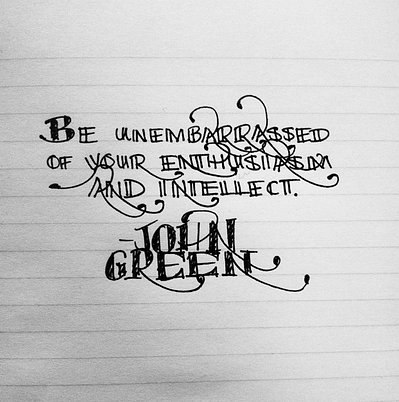 BE UNEMBARRASSED
OF YOUR ENTHUSIASM
AND INTELLECT.
-JOHN
GREEN